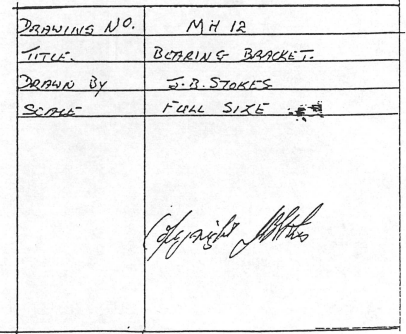 DRAWING NO. MH 12
TITLE. BEARING BRACKET.
DRAWN BY J.B.STOKES
SCALE FULL SIZE
Copyright